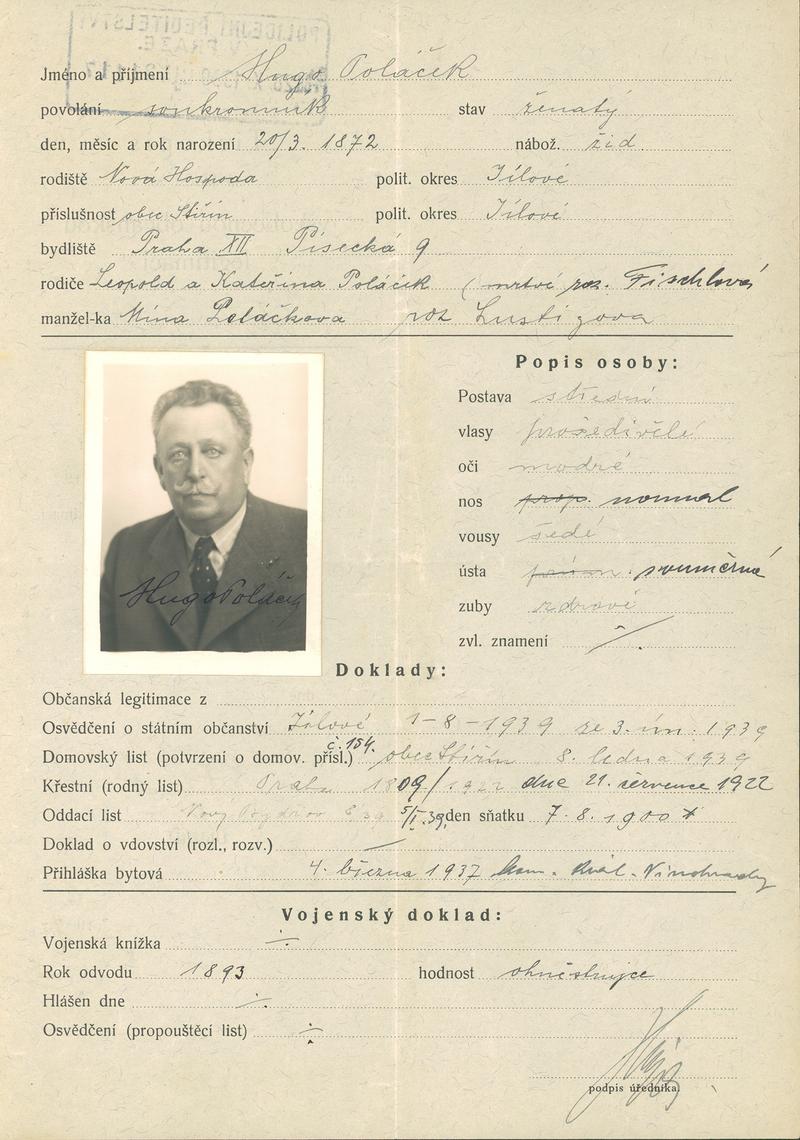 Jméno a příjmení Hugo Poláček
povolání soukromník stav ženatý
den, měsíc a rok narození 20/3. 1872 nábož. žid
rodiště Nová Hospoda polit. okres Jílové
příslušnost obec Štiřín polit. okres Jílové
bydliště Praha XII Písecká 9
rodiče Leopold a Kateřina Poláček (mrtví roz. Fischlová
manžel-ka Mína Poláčkova roz Lustigova
Popis osoby:
Postava střední
vlasy prošedivělé
oči modré
nos prop. normal
vousy šedé
ústa souměrné
zuby zdravé
zvl. znamení
Hugo Poláček
Doklady:
Občanská legitimace z
Osvědčení o státním občanství Jílové 1-8-1939 ze 3. ún. 1939
Domovský list (potvrzení o domov. přísl.) č. 154. obec Štiřín 8. ledna 1939
Křestní (rodný list) Praha 1809/1922 dne 21. července 1922
Oddací list Nový 5/I.39. den sňatku 7.8.1900
Doklad o vdovství (rozl., rozv.) —
Přihláška bytová 4. března 1937 kom. Král. Vinohrady
Vojenský doklad:
Vojenská knížka ÷
Rok odvodu 1893 hodnost ohněstrůjce
Hlášen dne ÷
Osvědčení (propouštěcí list) ÷
podpis úředníka.